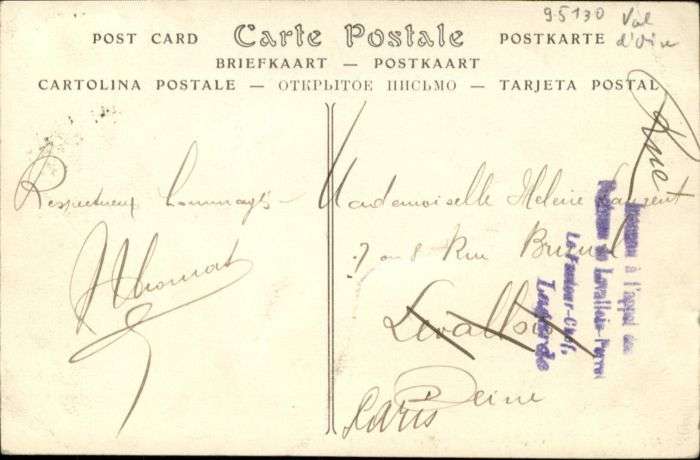 95130 Val
d'Oise
POST CARD Carte Postale POSTKARTE
BRIEFKAART — POSTKAART
CARTOLINA POSTALE — ОТКРЫТОЕ ПИСЬМО — TARJETA POSTAL
Respectueux hommages
Thomas
Mademoiselle Helene Laurent
7 ou 8 Rue
Levallois
Seine
Paris
à l'appel des
de Levallois-Perret
Le Facteur-Chef,